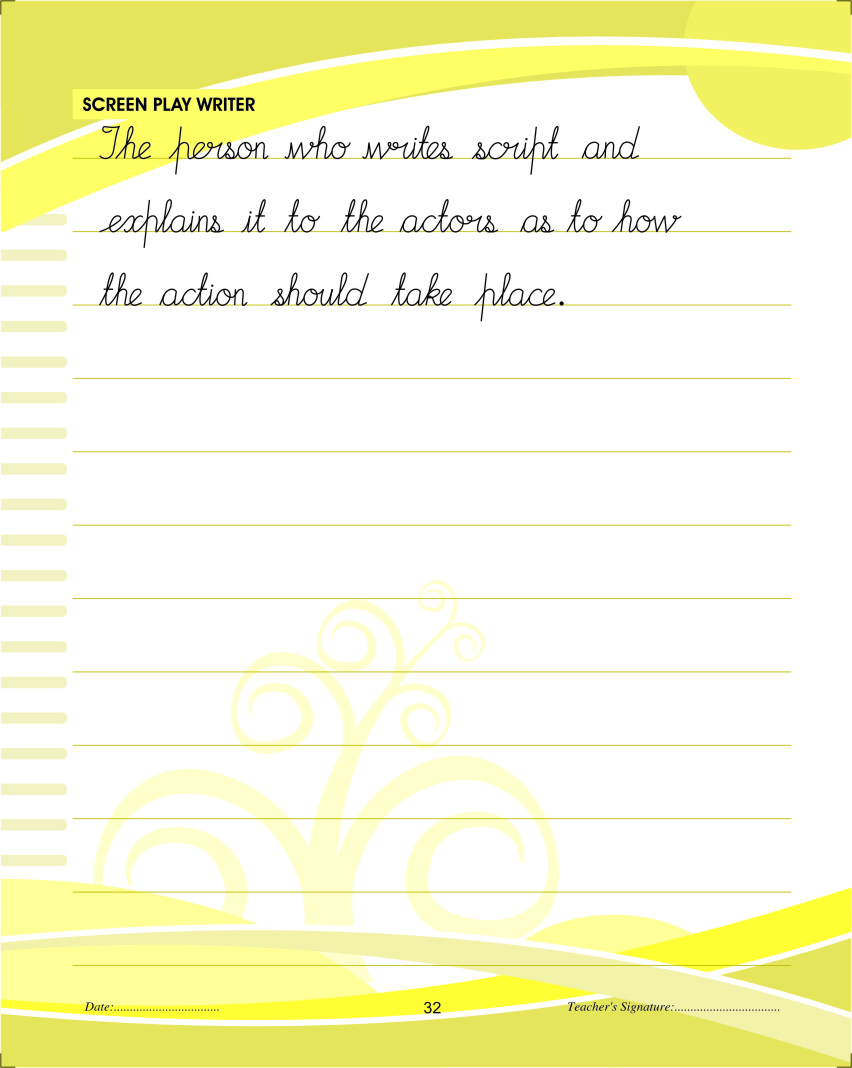 SCREEN PLAY WRITER
The person who writes script and
explains it to the actors as to how
the action should take place.
Date:.................................
32
Teacher's Signature:.................................